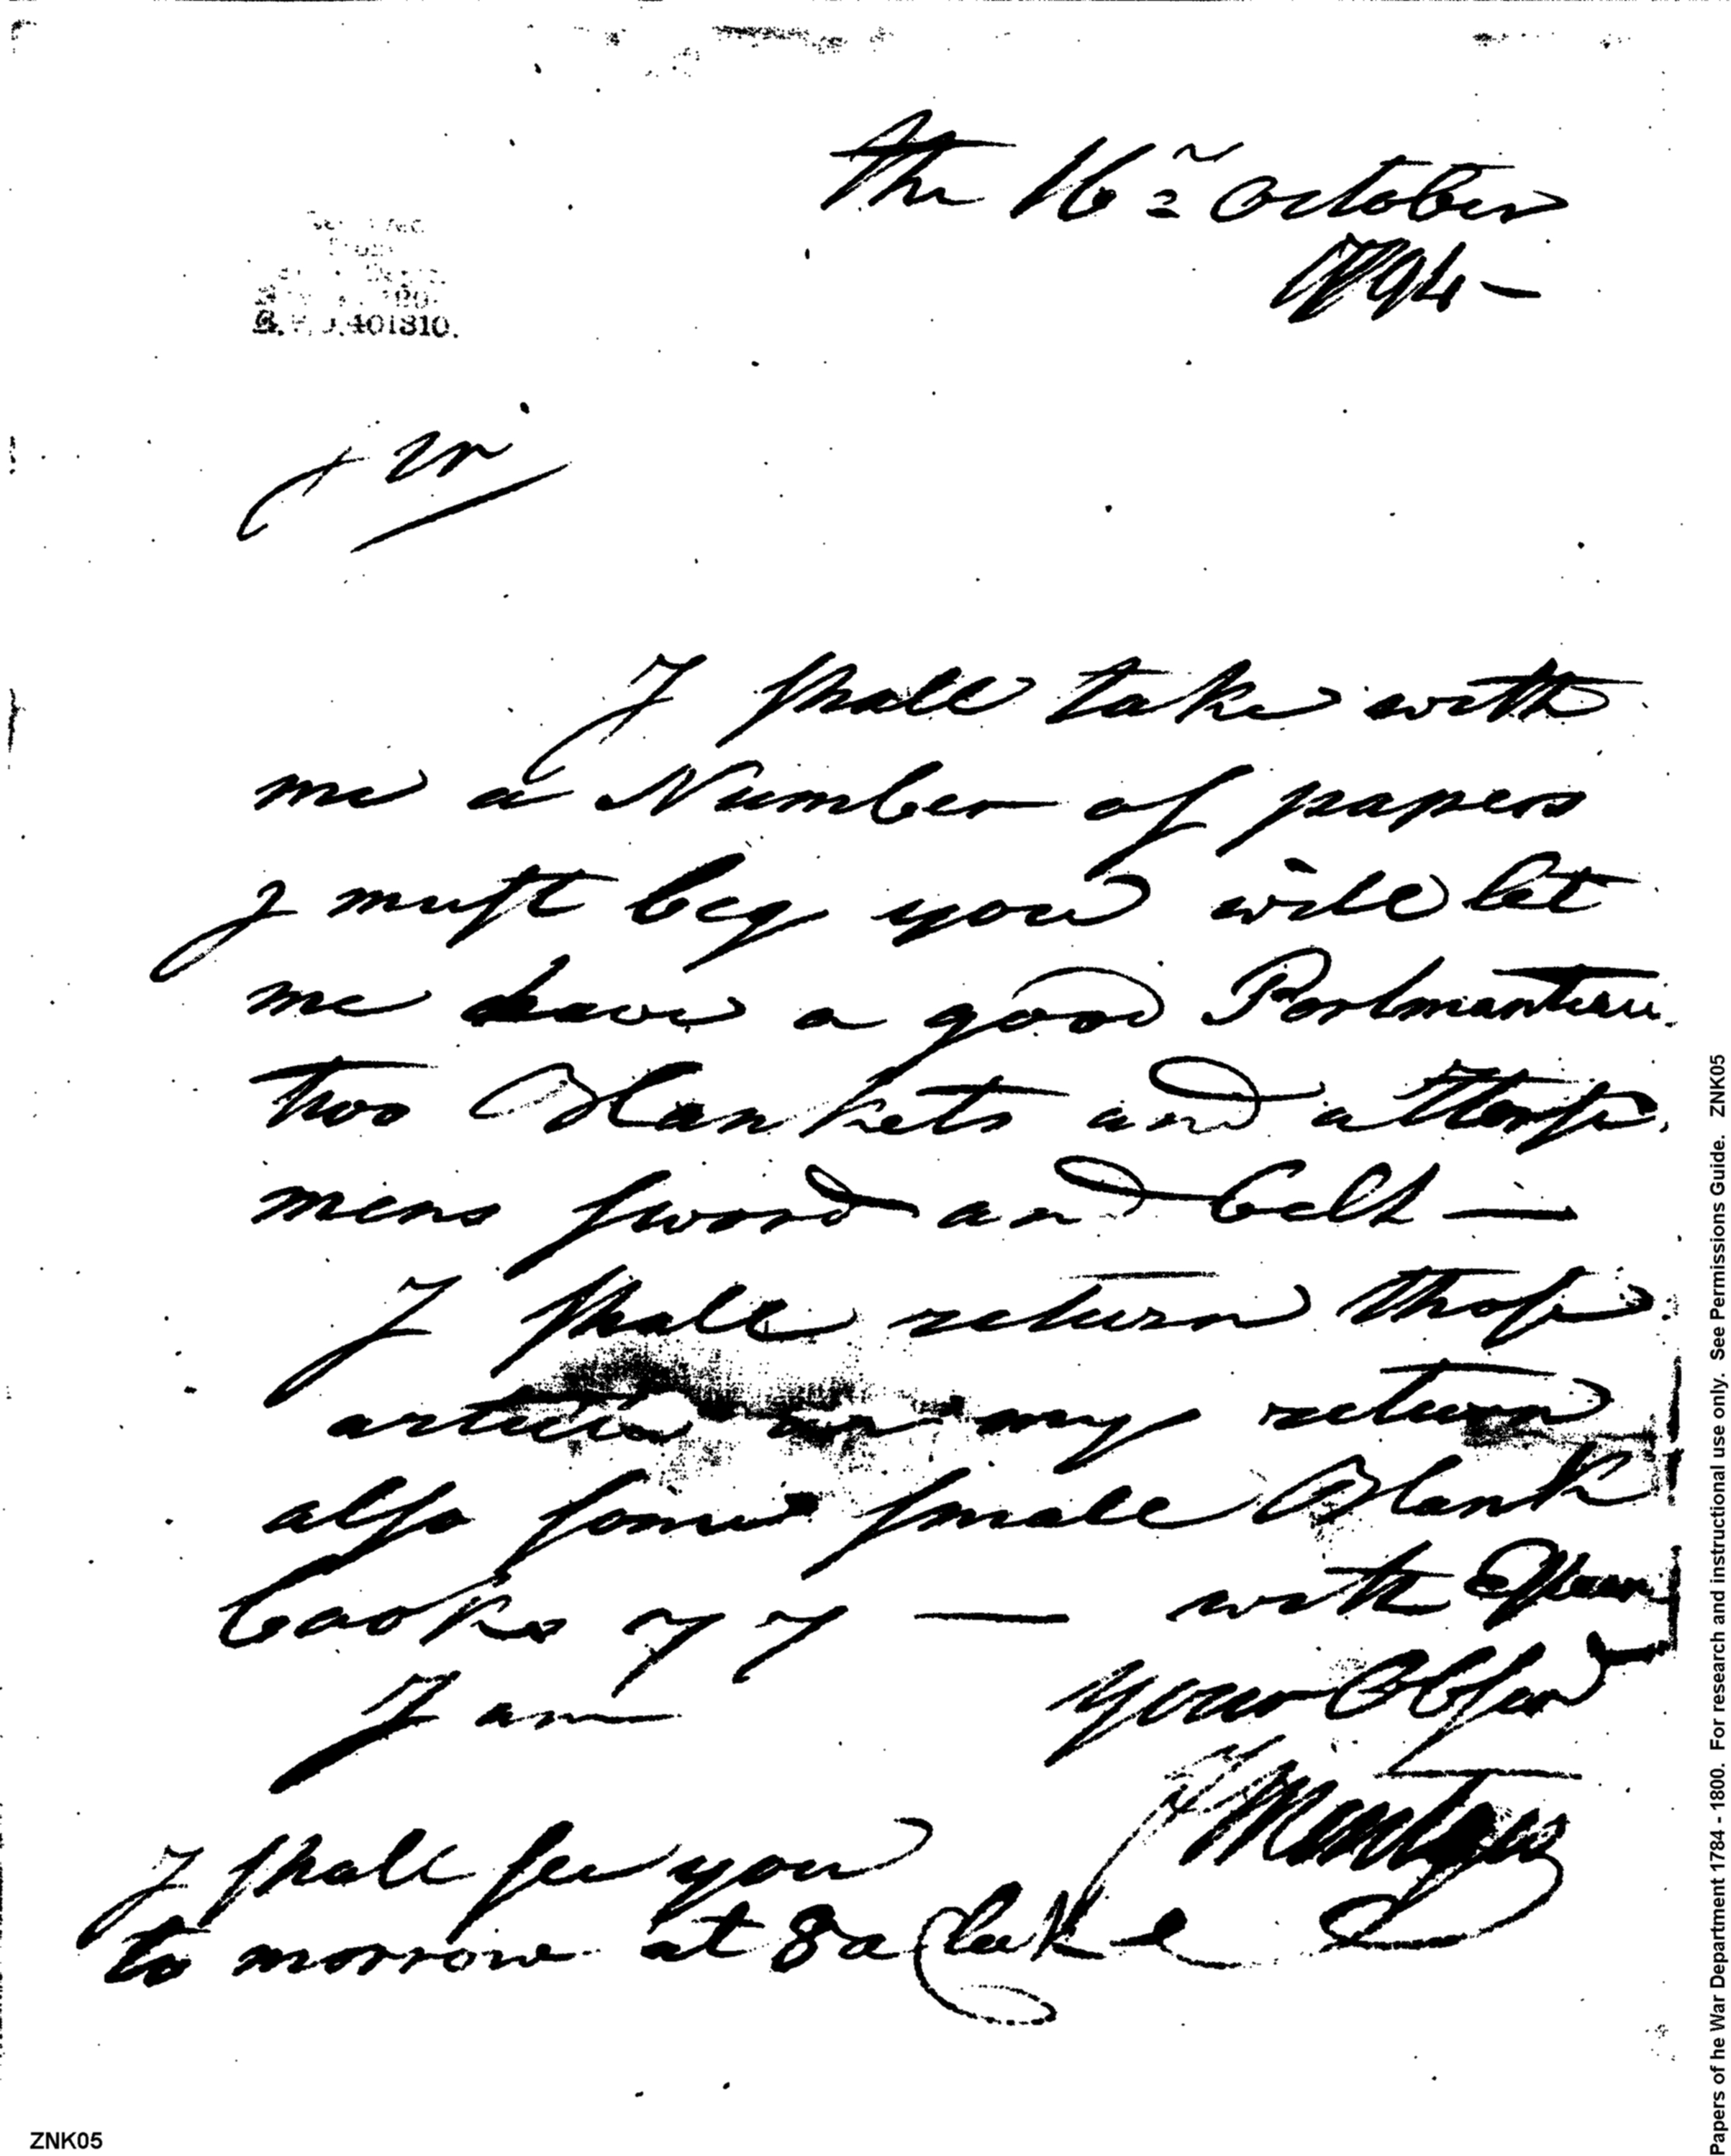 the 16th October
1794 –
Sir
I shall take with
me a Number of papers
I must beg you will let
me have a good Portmanteau
two Blankets and a Horse
mens sword and belt —
I shall return those
articles on my return
also some small Blank
books — with
I am your
I shall see you
to morrow at 8 a Clock
401810.
ZNK05
Papers of he War Department 1784 - 1800. For research and instructional use only. See Permissions Guide. ZNK05